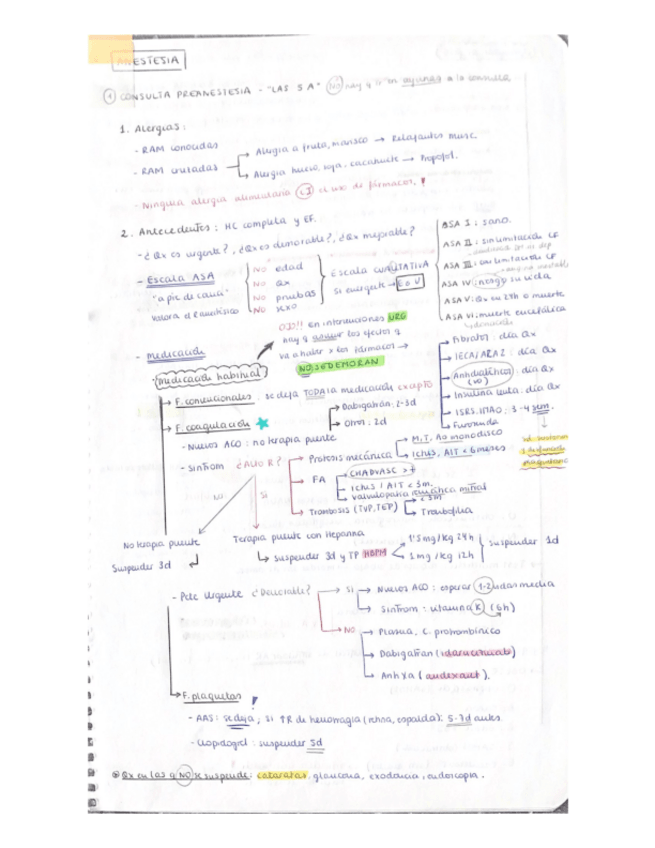 ANESTESIA
① CONSULTA PREANESTESIA - "LAS 5 A" (NO) hay q ir en ayunas a la consulta
1. Alergias:
- RAM conocidas
- RAM cruzadas
Alergia a fruta, marisco → Relajantes musc.
Alergia huevo, soja, cacahuete → Propofol.
- Ninguna alergia alimentaria CI el uso de fármacos !
2. Antecedentes: HC completa y EF.
- ¿Qx es urgente?, ¿Qx es demorable?, ¿Qx mejorable?
- Escala ASA
"a pie de cama"
NO edad
NO Qx
NO pruebas
NO sexo
Escala CUALITATIVA
Si emergente → E o U
ASA I: sano.
ASA II: sin limitación CF
ASA III: con limitación CF
ASA IV: riesgo su vida
ASA V: Qx en 24h o muerte
ASA VI: muerte encefálica
- Medicación
Medicación habitual
OJO!! En intervenciones URG
hay q asumir los efectos q
va a haber x los fármacos →
NO SE DEMORAN
→ F. convencionales: se deja TODA la medicación, excepto
Fibratos: día Qx
IECA/ARA2: día Qx
Antidiabéticos (VO): día Qx
Insulina lenta: día Qx
ISRS, IMAO: 3-4 sem.
Furosemida
→ F. coagulación
Dabigatrán: 2-3d
Otros: 2d
- Nuevos ACO: no terapia puente
- Sintrom ¿Alto R?
Prótesis mecánica
M.T. Ao monodisco
Ictus, AIT < 6 meses
FA
CHADVASC > 7
Ictus / AIT < 3m.
Valvulopatía reumática mitral
Trombosis (TVP, TEP)
< 3m
Trombofilia
NO
SI
No terapia puente
Suspender 3d
Terapia puente con Heparina
Suspender 3d y TP HBPM
1'5 mg/kg 24h
1 mg/kg 12h
Suspender 1d
- Pctc Urgente ¿Demorable?
→ SI → Nuevos ACO: esperar 1-2 vidas media
Sintrom: vitamina K (6h)
→ NO → Plasma, C. protrombínico
→ Dabigatrán (idarucizumab)
→ Anti Xa (andexanet).
→ F. plaquetas !
- AAS: se deja, si ↑R de hemorragia (retina, espalda): 5-7d antes.
- Clopidogrel: suspender 5d
⊛ Qx en las q NO se suspende: cataratas, glaucoma, exodoncia, endoscopia.